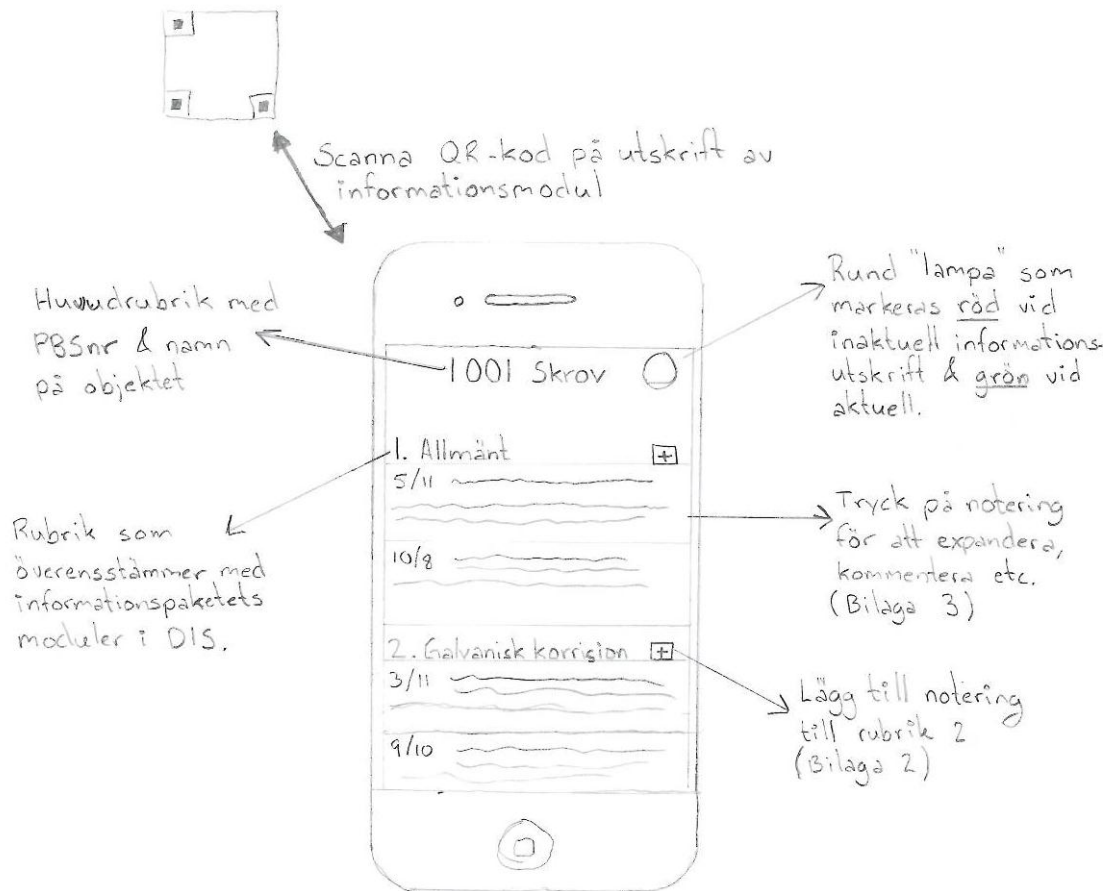 Scanna QR-kod på utskrift av
informationsmodul
Huvudrubrik med
PBSnr & namn
på objektet
Rund "lampa" som
markeras röd vid
inaktuell informations-
utskrift & grön vid
aktuell.
1001 Skrov
1. Allmänt
5/11
10/8
Rubrik som
överensstämmer med
informationspaketets
moduler i DIS.
Tryck på notering
för att expandera,
kommentera etc.
(Bilaga 3)
2. Galvanisk korrision
3/11
9/10
Lägg till notering
till rubrik 2
(Bilaga 2)